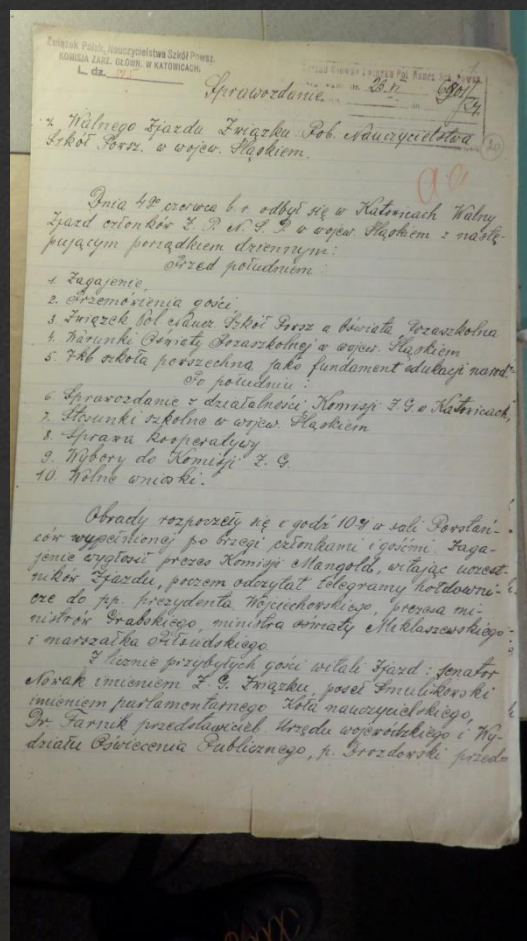 Związek Polsk. Nauczycielstwa Szkół Powsz.
KOMISJA ZARZ. GŁÓWN. W KATOWICACH.
L. dz.
Zarząd Główny Związku Pol. Naucz. Szk. Powsz.
26.VI 6801/24
Sprawozdanie
z Walnego Zjazdu Związku Pol. Nauczycielstwa
Szkół Powsz. w wojew. Śląskiem.
20
Dnia 4go czerwca b. r. odbył się w Katowicach Walny
Zjazd członków Z. P. N. S. P. w wojew. Śląskiem z nastę-
pującym porządkiem dziennym:
Przed południem:
1. Zagajenie,
2. Przemówienia gości,
3. Związek Pol. Naucz. Szkół Powsz. a Oświata Pozaszkolna
4. Warunki Oświaty Pozaszkolnej w wojew. Śląskiem
5. 7kl. szkoła powszechna jako fundament edukacji narod.
Po południu:
6. Sprawozdanie z działalności Komisji Z. G. w Katowicach,
7. Stosunki szkolne w wojew. Śląskiem
8. Sprawa Kooperatywy
9. Wybory do Komisji Z. G.
10. Wolne wnioski.
Obrady rozpoczęły się o godz 10ej w sali Powstań-
ców wypełnionej po brzegi członkami i gośćmi. Zaga-
jenie wygłosił prezes Komisji Mangold, witając uczest-
ników Zjazdu, poczem odczytał telegramy hołdowni-
cze do pp. prezydenta Wojciechowskiego, prezesa mi-
nistrów Grabskiego, ministra oświaty Miklaszewskiego
i marszałka Piłsudskiego.
Z licznie przybyłych gości witali Zjazd: senator
Nowak imieniem Z. G. Związku, poseł Smulikowski
imieniem parlamentarnego Koła nauczycielskiego,
Dr. Farnik przedstawiciel Urzędu wojewódzkiego i Wy-
działu Oświecenia Publicznego, p. Drozdowski przed-